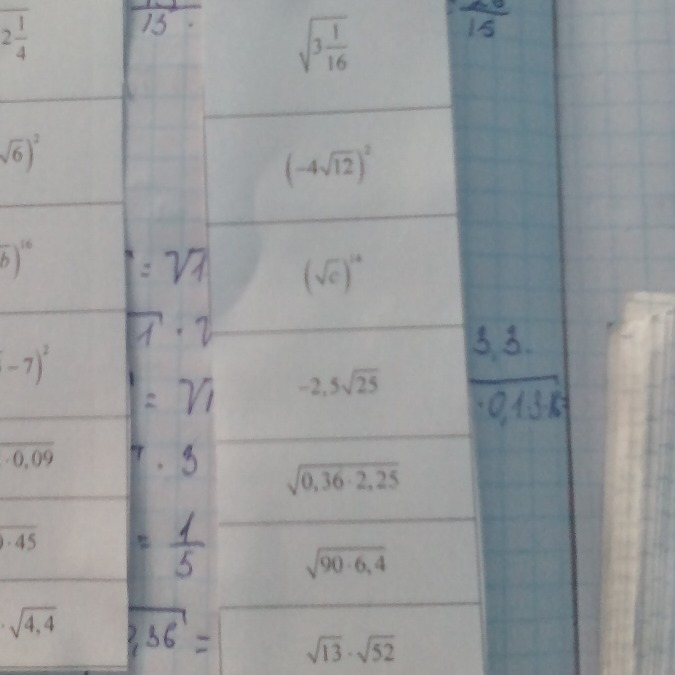 2\frac{1}{4}
√6)²
b)¹⁶
- 7)²
· 0,09
· 45
· √4,4
15 ·
= √1
1 · 2
= √1
· 3
= \frac{1}{5}
,36 =
\sqrt{3\frac{1}{16}}
(-4√12)²
-2,5√25
√(0,36 · 2,25)
√(90 · 6,4)
√13 · √52
15
3,3